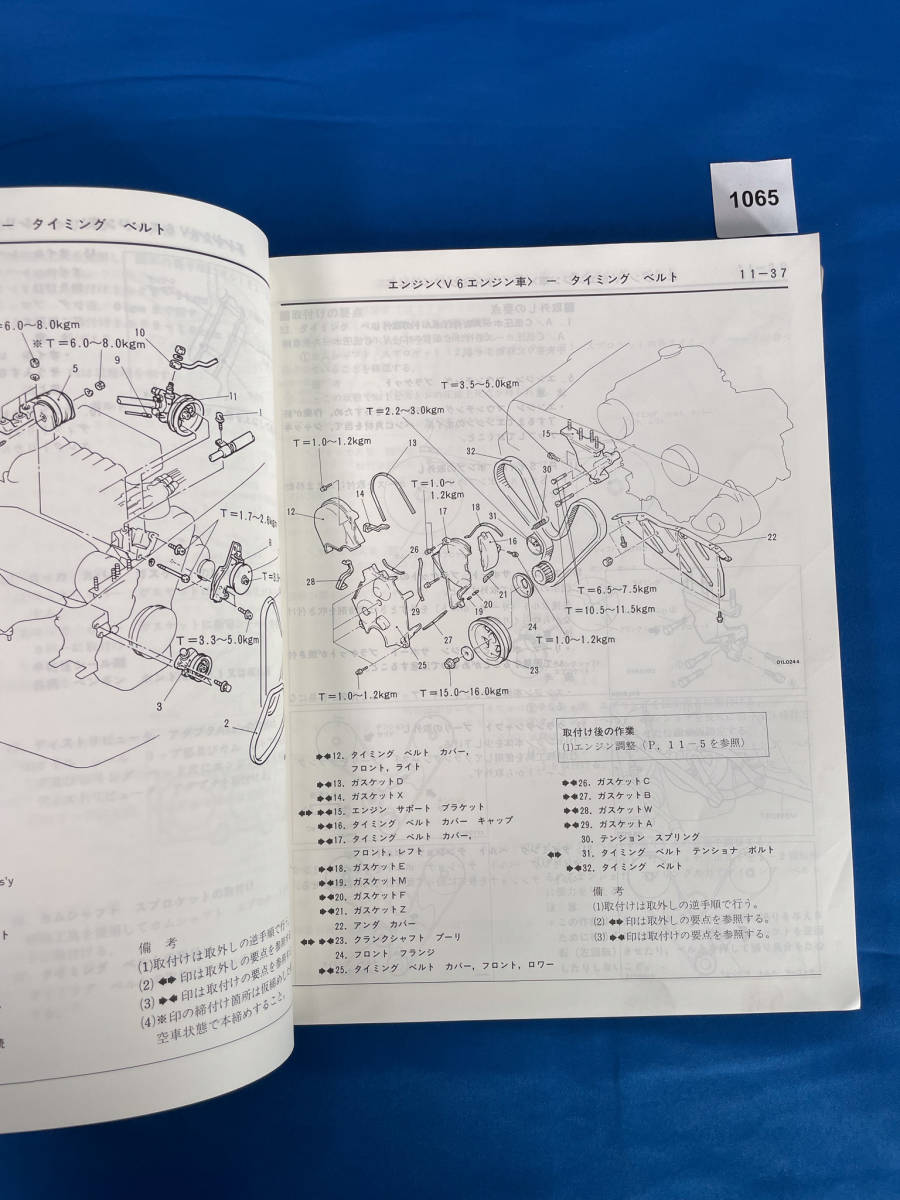 1065
ー タイミング ベルト
=6.0〜8.0kgm
※T=6.0〜8.0kgm
10
9
5
11
1
T=1.7〜2.
8
T=3.3〜5.0kgm
3
2
s'y
備 考
(1)取付けは取外しの逆手順で行う。
(2)◀▶印は取外しの要点を参照する。
(3)▶◀印は取付けの要点を参照
(4)※印の締付け箇所は仮締めし
空車状態で本締めすること。
エンジン〈V6エンジン車〉 ー タイミング ベルト
11−37
T=3.5〜5.0kgm
T=2.2〜3.0kgm
T=1.0〜1.2kgm
13
32
15
30
T=1.0〜
1.2kgm
14
12
17
18
31
16
22
26
28
21
20
29
19
24
27
25
23
T=6.5〜7.5kgm
T=10.5〜11.5kgm
T=1.0〜1.2kgm
T=1.0〜1.2kgm
T=15.0〜16.0kgm
01L0244
取付け後の作業
(1)エンジン調整(P, 11−5を参照)
▶◀12. タイミング ベルト カバー,
フロント, ライト
▶◀13. ガスケットD
▶◀14. ガスケットX
◀▶ ▶◀15. エンジン サポート ブラケット
▶◀16. タイミング ベルト カバー キャップ
▶◀17. タイミング ベルト カバー,
フロント, レフト
▶◀18. ガスケットE
▶◀19. ガスケットM
▶◀20. ガスケットF
▶◀21. ガスケットZ
22. アンダ カバー
◀▶ ▶◀23. クランクシャフト プーリ
24. フロント フランジ
▶◀25. タイミング ベルト カバー, フロント, ロワー
▶◀26. ガスケットC
▶◀27. ガスケットB
▶◀28. ガスケットW
▶◀29. ガスケットA
30. テンション スプリング
◀▶ 31. タイミング ベルト テンショナ ボルト
▶◀32. タイミング ベルト
備 考
(1)取付けは取外しの逆手順で行う。
(2)◀▶印は取外しの要点を参照する。
(3)▶◀印は取付けの要点を参照する。